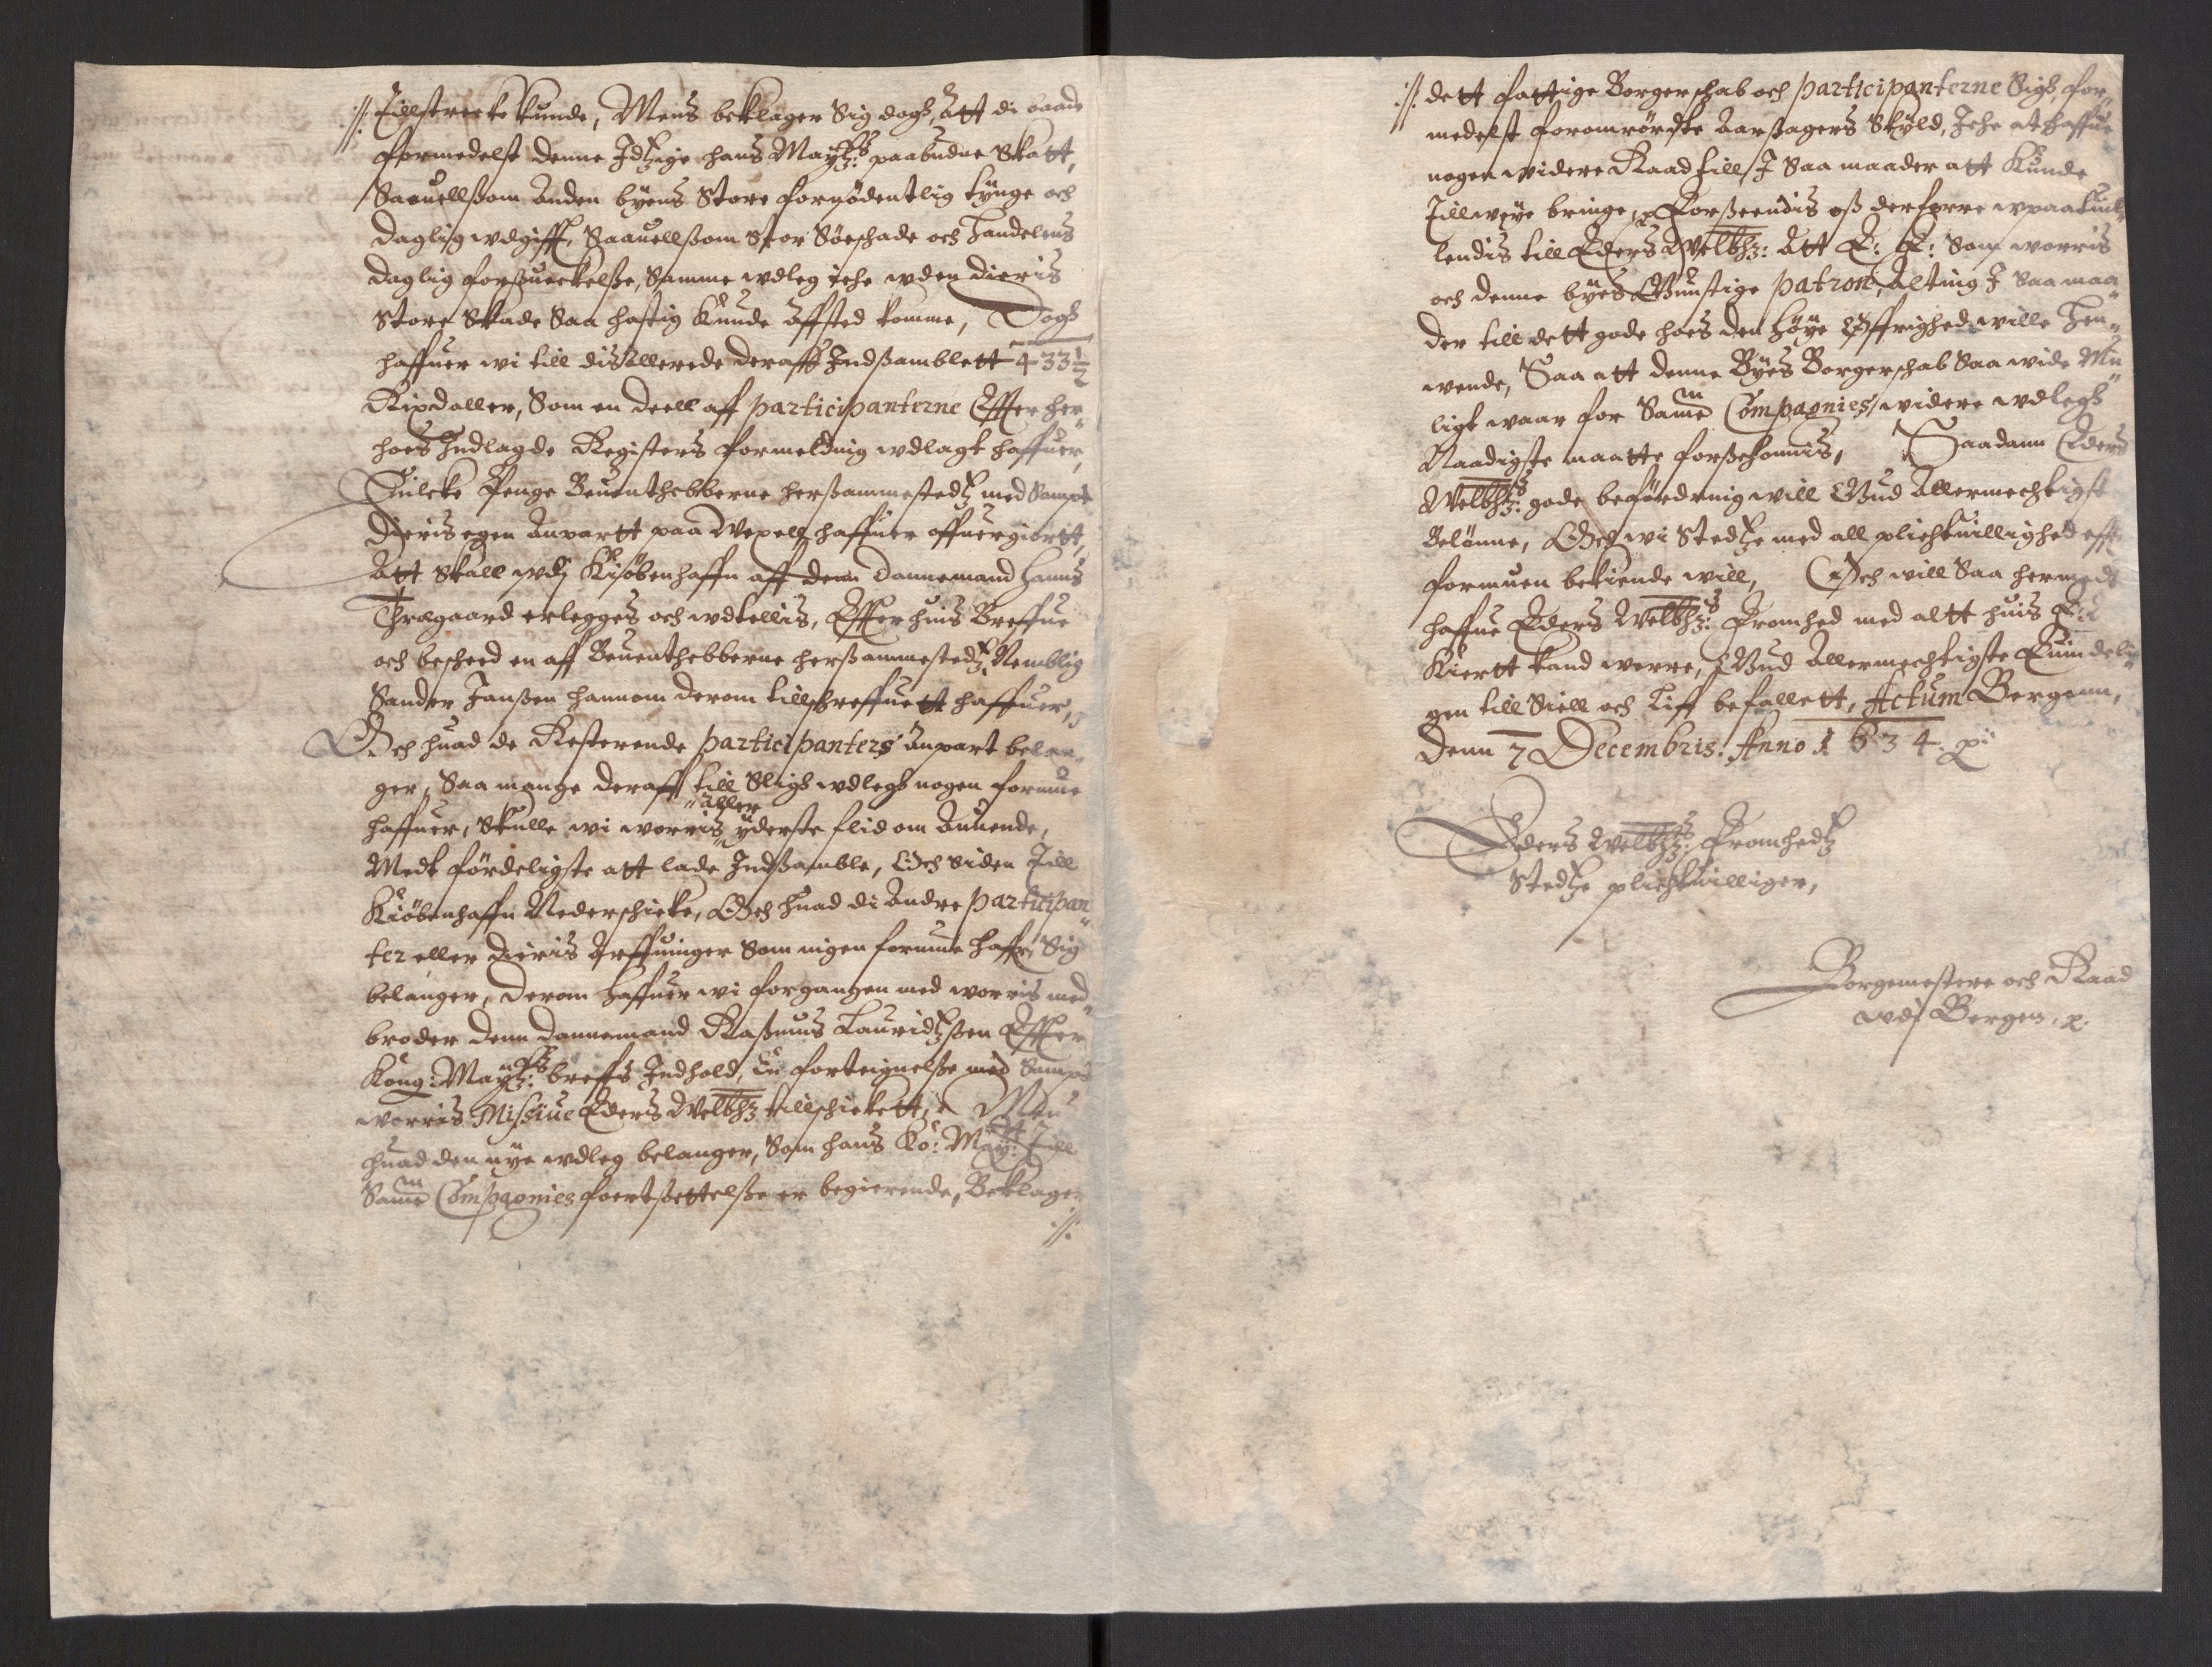 :/: Tillstrecke kunde, Mens beklager Sig dogh, Att di baade
formedelst denne Jdtzige hans Maytz: paabudne Skatt,
Saauellsom Anden byens Store fornødentlig tynge och
daglig wdgifft, Saauellsom Stor Søeschade och handelens
daglig forsueckelsse, Samme wdleg iche wden dieris
Store Skade Saa hastig kunde Affsted komme, Dogh
haffuer wi till dis Allerede deraff Jndsamblett 433½
Rixdaller, Som en deell aff participanterne Effter her"
hoes Jndlagde Registers formelding wdlagt haffuer,
Huilcke Penge Beuenthebberne hersammestedtz med Sampt
dieris egen Anpartt paa Wexell haffuer offuergiortt,
Att skall wdj Kiøbenhaffn aff denn dannemand Hanns
Thrægaard erlegges och wdtellis, Effter huis Breffue
och bescheed en aff Beuenthebberne hersammestedtz Nemblig
Sander Janssen hannom derom tillschreffuett haffuer,
Och huad de Resterende participanters anpart belan"
ger, Saa mange deraff till Sligh wdlegh nogen formue
haffuer, Skulle wi worris "aller" yderste flid om Anuende,
Medt fördeligste att lade Jndsamble, Och Siden Till
Kiöbenhaffn Nederschicke, Och huad di Andre participan"
ter eller dieris Arffuinger Som ingen formue haffr, Sig
belanger, derom haffuer wi forgangen med worris med"
broder denn dannemand Rasmus Lauridtzsen Effter
Kong: Maytz: breffs Jndhold, En forteignelsse med Sampt
worris Missiue Eders Welbhz tillschickett, Men
huad den nye wdleg belanger, Som hans Ko: May: Till
Same Compagnies foertsettelsse er begierende, Beklager
:/:
:/: dett fattige Borgerschab och participanterne Sigh, for"
medelst foromrördte Aarsagers Skyld, Jche at haffue
nogen widere Raad till, J Saa maader att kunde
Tillweye bringe, Forseendis oss derforre wpaatuil"
lendis till Eders Welbhz: Att E: E: Som worris
och denne byes Gunstige patron, Alting J Saa maa"
der till dett gode hoes den Höye Øffrighed wille Hen"
wende, Saa att denne Byes Borgerschab Saa wide Mu"
ligt waar for Same Compagnies widere wdlegh
Naadigste maatte forschonnis, Saadann Eders
Welbhz: gode befordring will Gud Allermechtigst
Belönne, Och wi Stedtze med all plichtuillighed effter
formuen bekiende will, Och will Saa hermedt
haffue Eders Welbhz: Fromhed med altt huis E:
Kiertt kand werre, Gud Allermechtigste Euindeli"
gen till Siell och Liff befallett, Actum Bergenn,
Denn 7 Decembris. Anno 1634.
Eders Welbhz: Fromhedtz
Stedtze plichtwilliger,
Borgemestere och Raad
wdj Bergen,